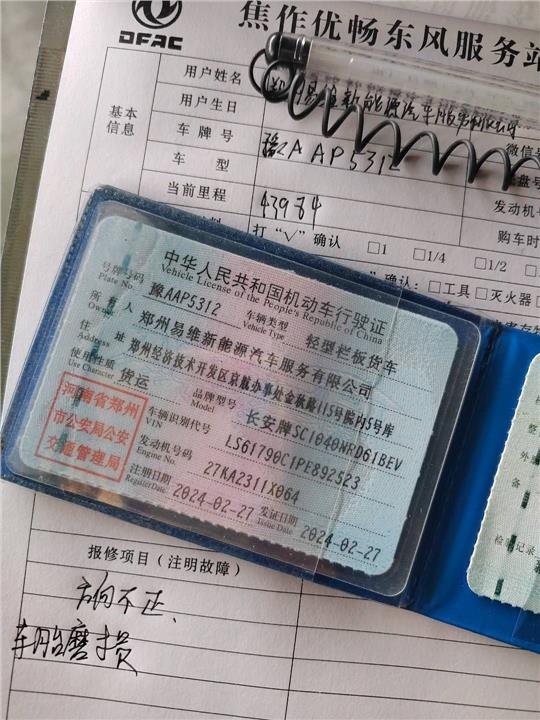 DFAC
焦作优畅东风服务站
基本信息
用户姓名
用户生日
车牌号 豫A AP5312
微信号
车型
当前里程 43984
发动机号
打“√”确认 □1 □1/4 □1/2
购车时
确认：□工具 □灭火器
中华人民共和国机动车行驶证
Vehicle License of the People's Republic of China
号牌号码 豫AAP5312 车辆类型 轻型栏板货车
Plate No. Vehicle Type
所有人 郑州易维新能源汽车服务有限公司
Owner
住址 郑州经济技术开发区京航办事处金秋路115号院内5号库
Address
使用性质 货运 品牌型号 长安牌SC1040NRD61BEV
Use Character Model
河南省郑州市公安局公安交通管理局
车辆识别代号 LS6179OC1PE892523
VIN
发动机号码 27KA2311X064
Engine No.
注册日期 2024-02-27 发证日期 2024-02-27
Register Date Issue Date
检验记录
报修项目（注明故障）
方向不正、
车胎磨损